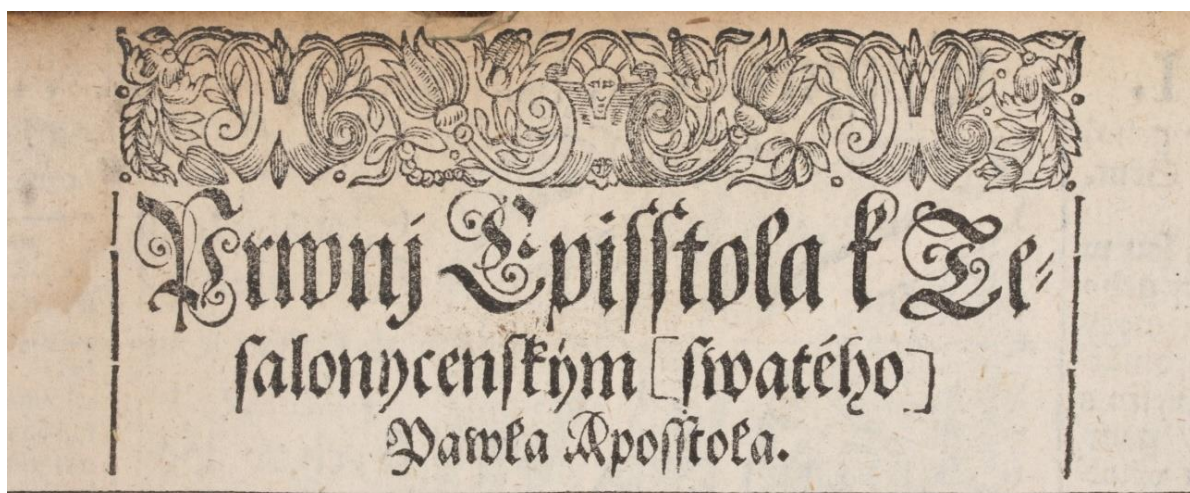 Prwnj Episſtola k Te⸗
ſalonycenſkým [ſwatého]
Pawla Apoſſtola.